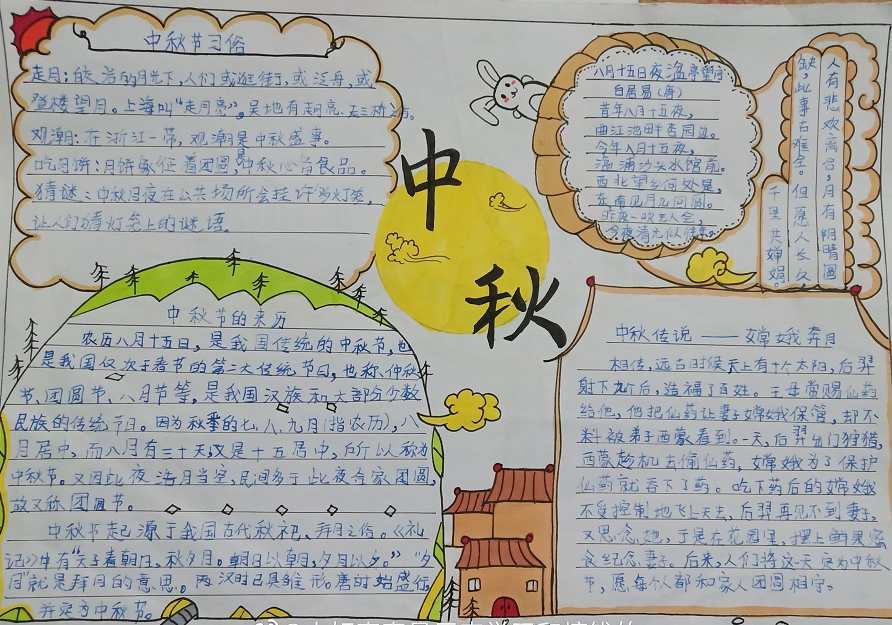 中秋节习俗
走月：皎洁的月光下，人们或逛街，或泛舟，或
登楼望月。上海叫“走月亮”，吴地有走月亮、走三桥
观潮：在浙江一带，观潮是中秋盛事。
吃月饼：月饼象征着团圆，是中秋必备食品。
猜谜：中秋月夜在公共场所会挂许多灯笼，
让人们猜灯笼上的谜语。
中
秋
八月十五日夜湓亭望月
白居易（唐）
昔年八月十五夜，
曲江池畔杏园边。
今年八月十五夜，
湓浦沙头水馆前。
西北望乡何处是，
东南见月几回圆。
昨夜一吹无人会，
今夜清光似往年。
人有悲欢离合，月有阴晴圆
缺，此事古难全。但愿人长久，
千里共婵娟。
中秋节的来历
农历八月十五日，是我国传统的中秋节，也
是我国仅次于春节的第二大传统节日，也称仲秋
节、团圆节、八月节等，是我国汉族和大部分少数
民族的传统节日。因为秋季的七、八、九月（指农历），八
月居中，而八月有三十天，又是十五居中，所以称为
中秋节。又因此夜浩月当空，民间多于此夜合家团圆，
故又称团圆节。
中秋节起源于我国古代秋祀、拜月之俗。《礼
记》中有“天子春朝日，秋夕月。朝日以朝，夕月以夕。”“夕
月”就是拜月的意思。两汉时已具雏形。唐时始盛行，
并定为中秋节。
中秋传说——嫦娥奔月
相传，远古时候天上有十个太阳，后羿
射下九个后，造福了百姓。王母常赐仙药
给他，他把仙药让妻子嫦娥保管，却不
料被弟子西蒙看到。一天，后羿出门狩猎，
西蒙趁机去偷仙药，嫦娥为了保护
仙药就吞下了药。吃下药后的嫦娥
不受控制地飞上天去，后羿再见不到妻子，
又思念她，于是在花园里，摆上鲜果蜜
食纪念妻子。后来，人们将这一天定为中秋
节，愿每个人都和家人团圆相守。